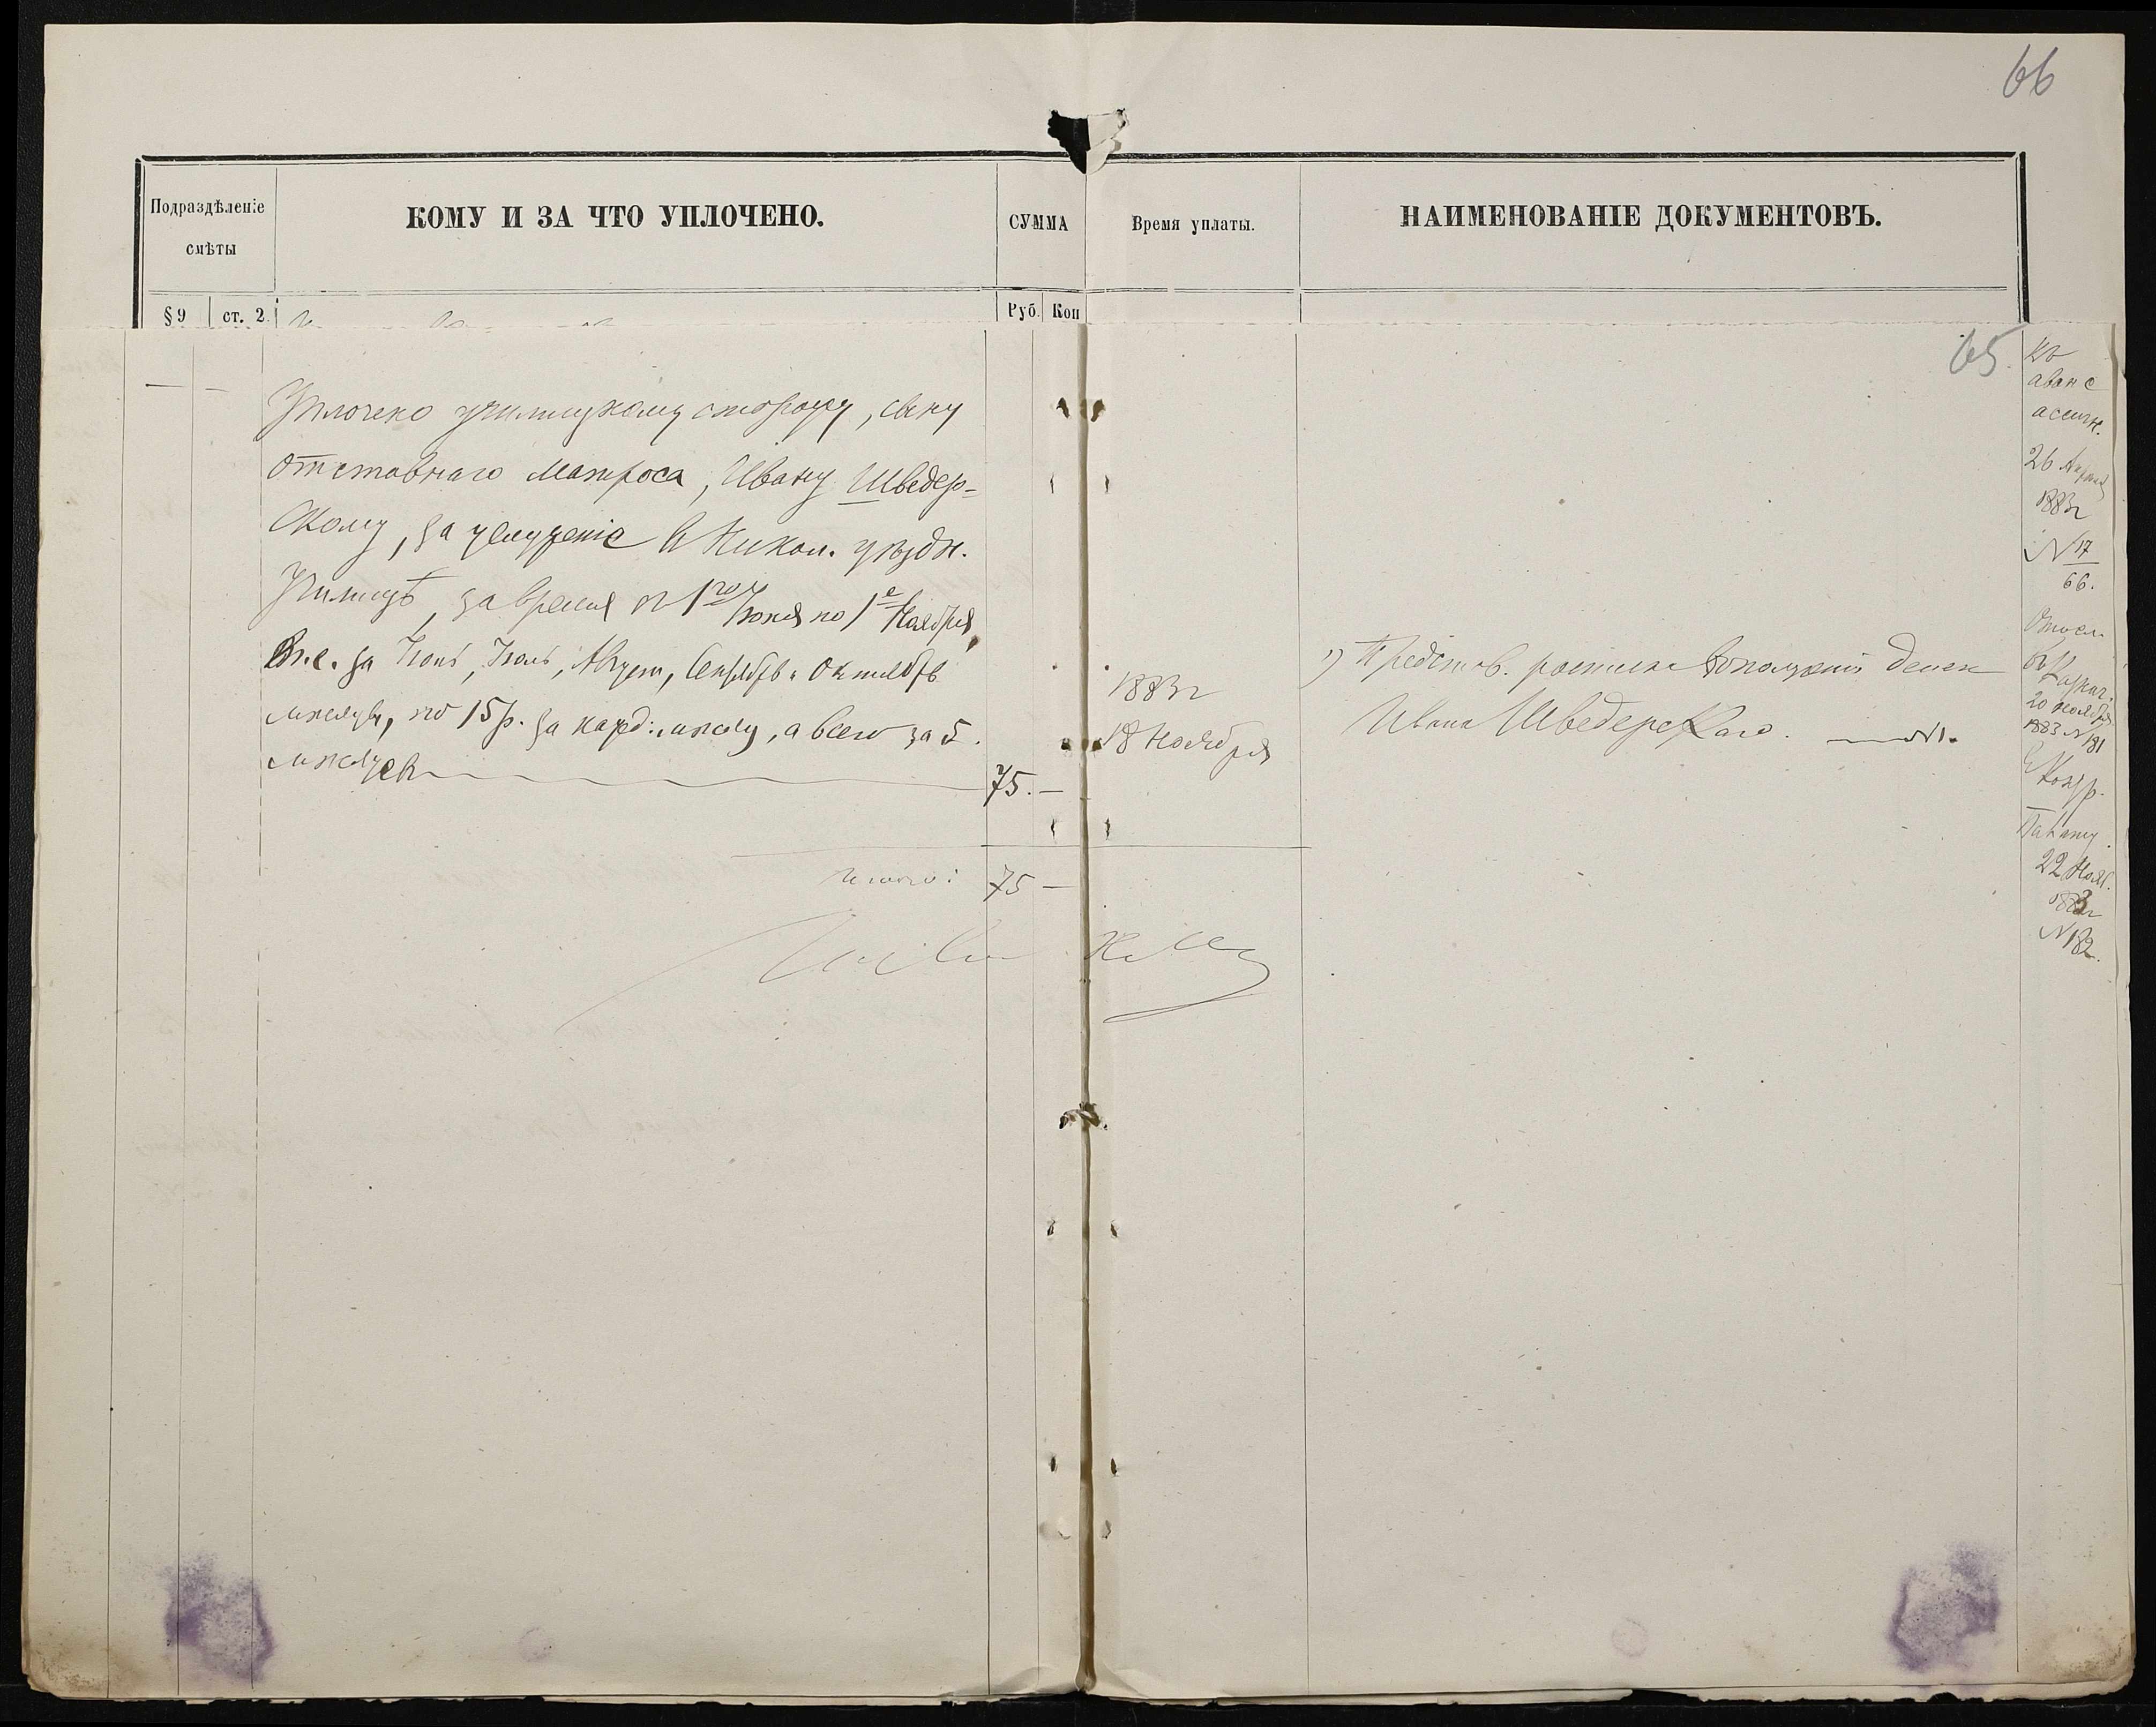 66
Подраздѣленіе
смѣты
КОМУ И ЗА ЧТО УПЛОЧЕНО.
СУММА
Время уплаты.
НАИМЕНОВАНІЕ ДОКУМЕНТОВЪ.
§ 9 ст. 2.
Руб. Коп
65.
Уплочено училищному сторожу, сыну
отставнаго матроса, Ивану Шведер-
скому, за услуженіе въ Никол. уѣздн.
Училищѣ, за время съ 1го Іюня по 1е Ноября,
т.е. за Іюнь, Іюль, Август, Сентябрь и Октябрь
мѣсяцы, по 15 р. за кажд: мѣсяцъ, а всего за 5
мѣсяцевъ
75. —
1883 г
18 Ноября
1) Представ. росписка въ полученіи денег
Ивана Шведерскаго. — №1.
Итого: 75 —
Къ
аванс
ассигн.
26 Апрѣля
1883 г
№ 17
66.
20 Ноября
1883 № 181
Контр.
Палату
22 Нояб.
1883 г
№ 182.